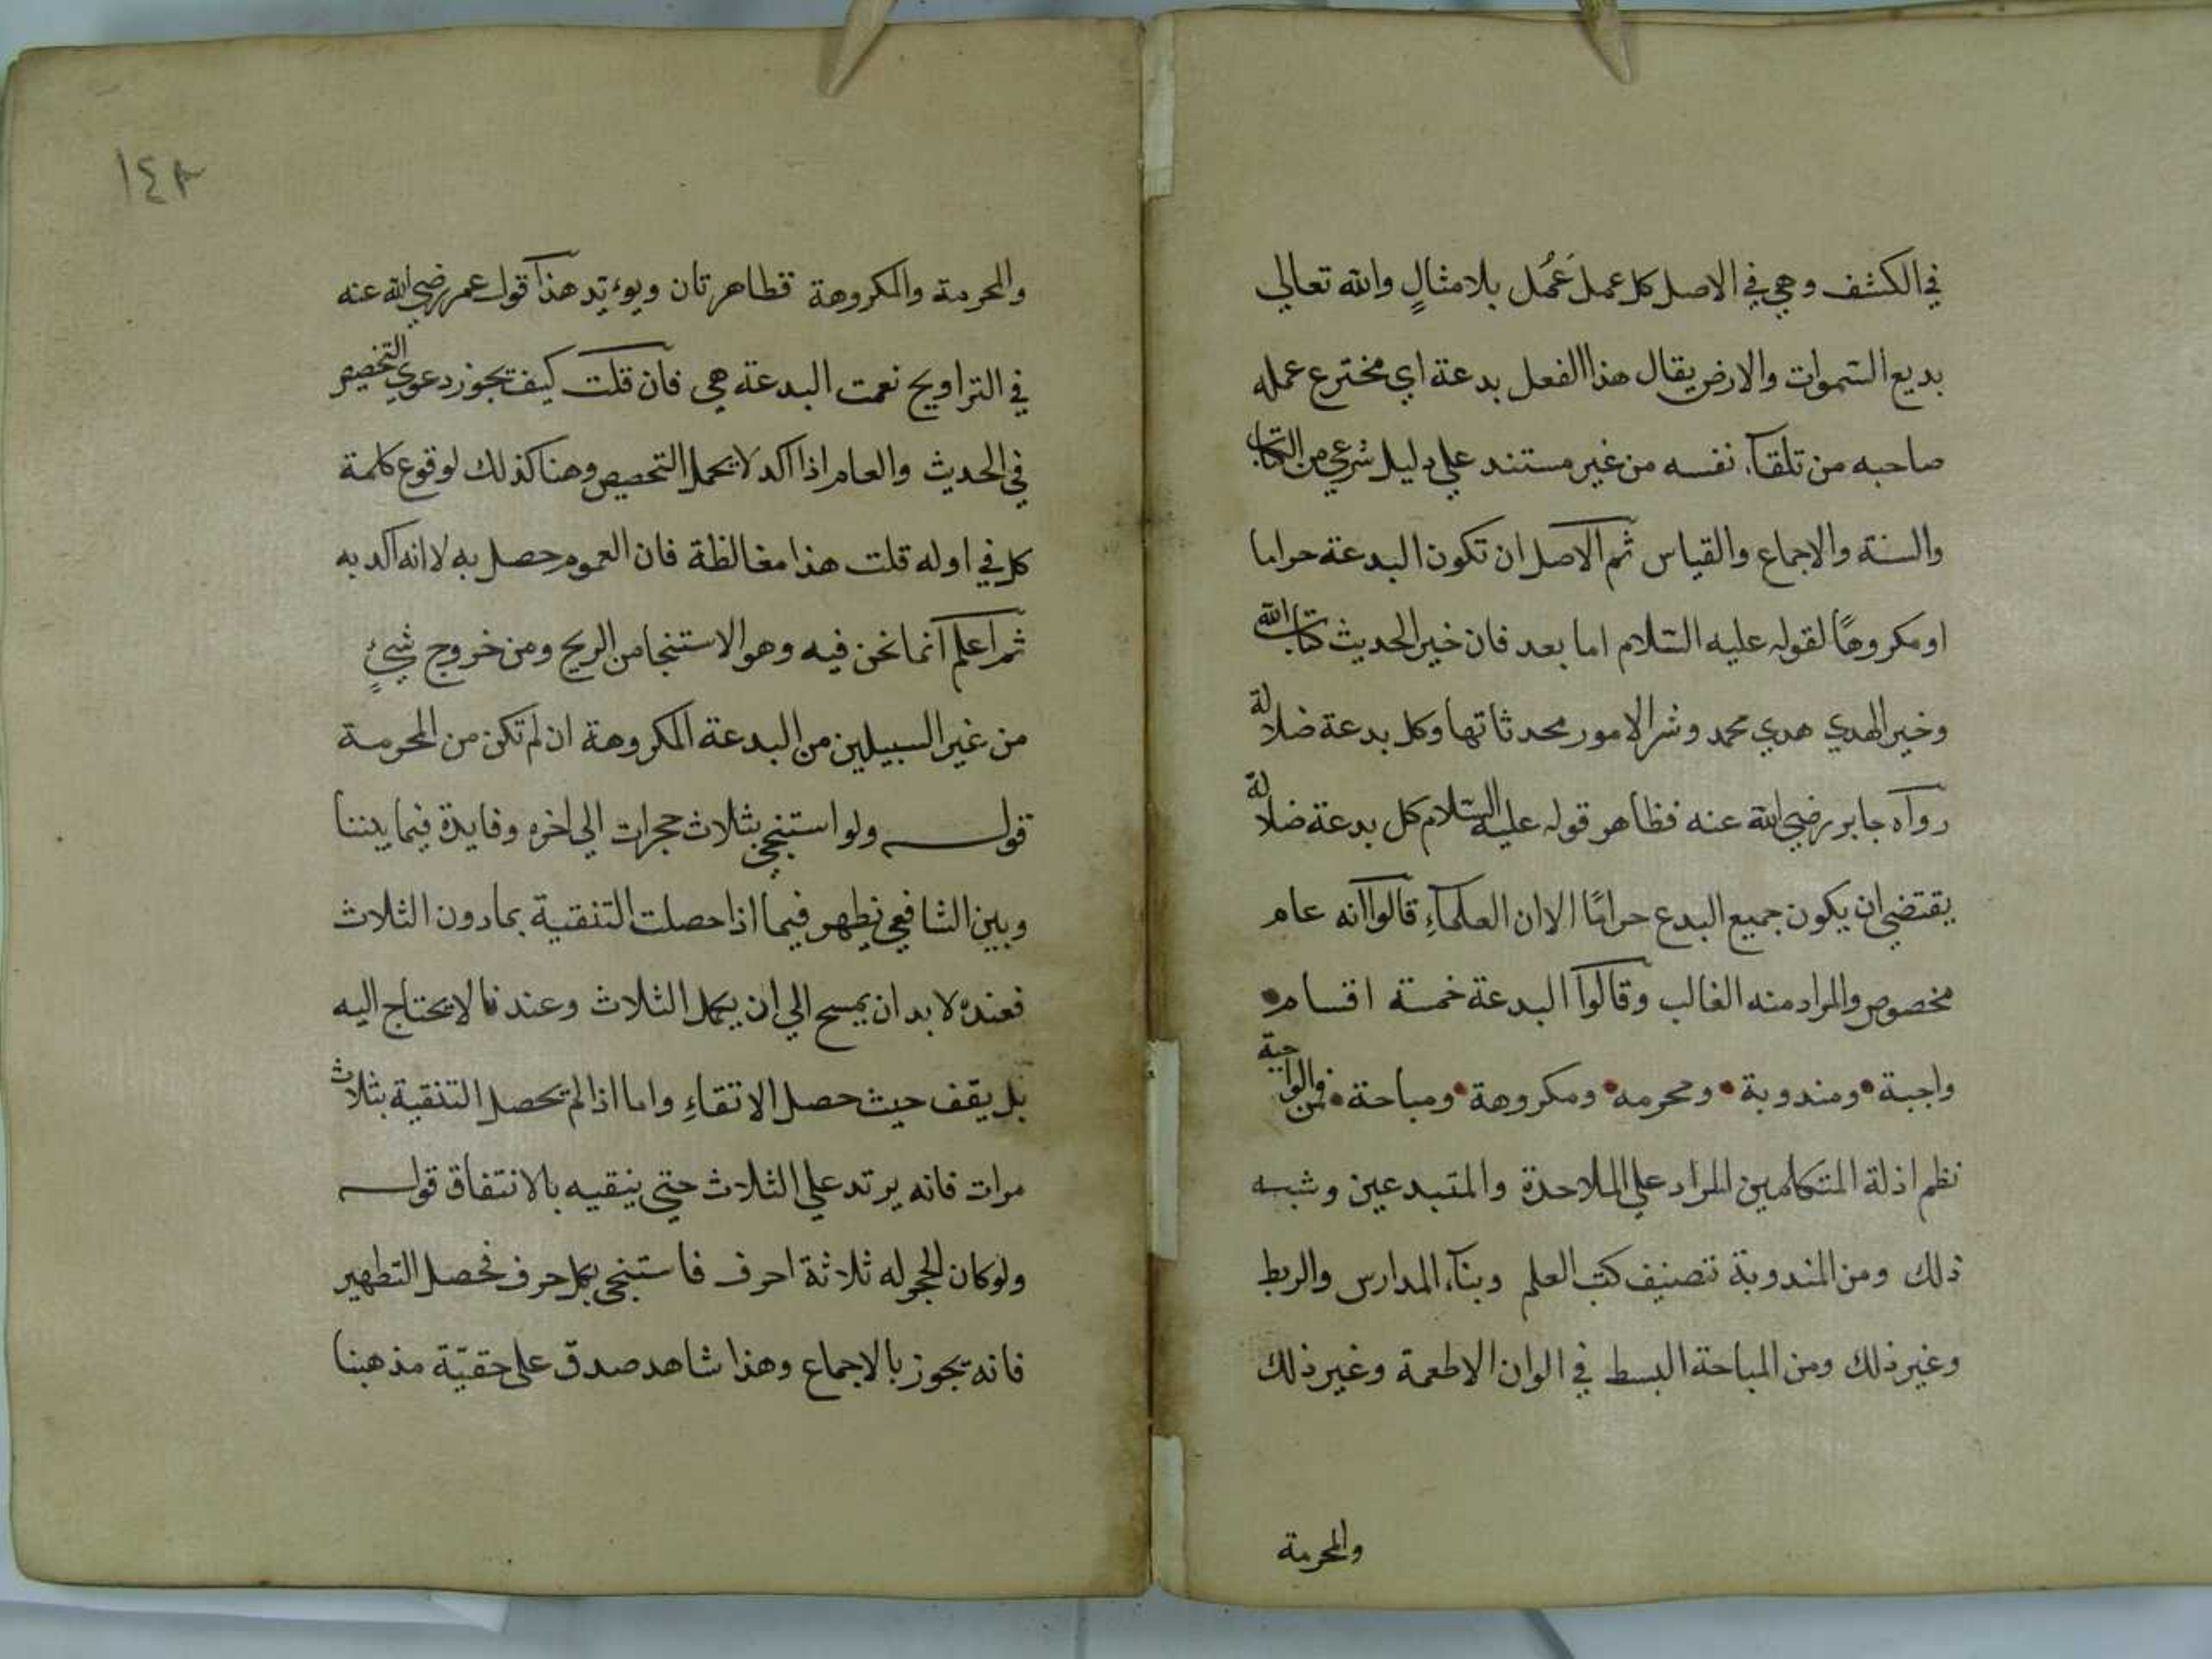 في الكشف وهي في الاصل كل عمل عُمل بلا مثالٍ والله تعالي
بديع السموات والارض يقال هذا الفعل بدعة اي مخترع عمله
صاحبه من تلقآء نفسه من غير مستند علي دليل شرعي من الكتاب
والسنة والاجماع والقياس ثم الاصل ان تكون البدعة حراما
او مكروهًا لقوله عليه السلام اما بعد فان خير الحديث كتاب الله
وخير الهدي هدي محمد وشر الامور محدثاتها وكل بدعة ضلالة
رواه جابر رضي الله عنه فظاهر قوله عليه السلام كل بدعة ضلالة
يقتضي ان يكون جميع البدع حرامًا الا ان العلمآءِ قالوا انه عام
مخصوص والمراد منه الغالب وقالوا البدعة خمسة اقسام
واجبة ومندوبة ومحرمه ومكروهة ومباحة فمن الواجبة
نظم ادلة المتكلمين المراد علي الملاحدة والمتبدعين وشبه
ذلك ومن المندوبة تصنيف كتب العلم وبنآء المدارس والربط
وغير ذلك ومن المباحة البسط في الوان الاطعمة وغير ذلك
والمحرمة
١٤٨
والمحرمة والمكروهة فظاهرتان ويوءيد هذا قول عمر رضي الله عنه
في التراويح نعمت البدعة هي فان قلت كيف تجوز دعوي التخصيص
في الحديث والعام اذا اكد لا يحمل التحصيص وهنا كذلك لوقوع كلمة
كل في اوله قلت هذا مغالطة فان العموم حصل به لا انه اكد به
ثم اعلم انما نحن فيه وهو الاستنجا من الريح ومن خروج شيءٍ
من غير السبيلين من البدعة المكروهة ان لم تكن من المحرمة
قوله ولو استنجي بثلاث حجرات الي اخره وفايدة فيما بيننا
وبين الشافعي تظهر فيما اذا حصلت التنقية بما دون الثلاث
فعنده لا بد ان يمسح الي ان يكمل الثلاث وعندنا لا يحتاج اليه
بل يقف حيث حصل الانقاءِ واما اذا لم يحصل التنقية بثلاث
مرات فانه يرتد علي الثلاث حتي ينقيه بالاتفاق قوله
ولو كان الحجر له ثلاثة احرف فاستنجي بكل حرف فحصل التطهير
فانه يجوز بالاجماع وهذا شاهد صدق علي حقيّة مذهبنا